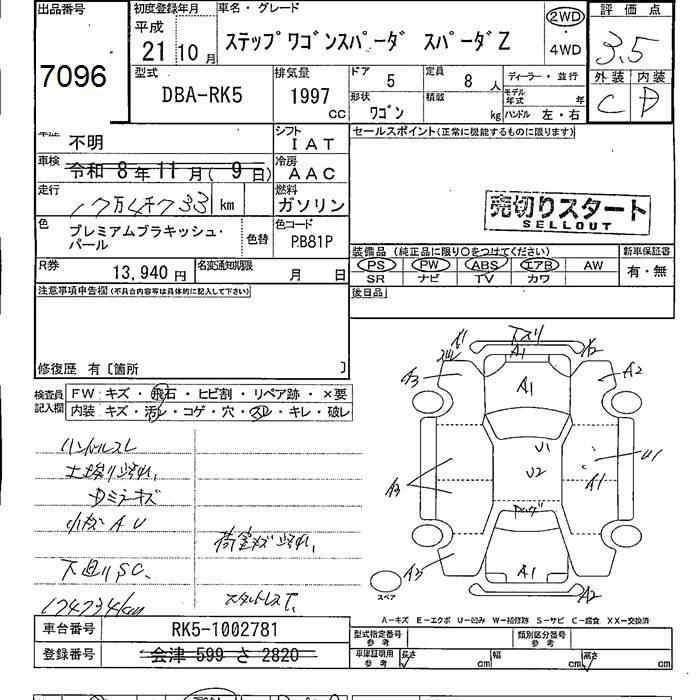 出品番号
7096
初度登録年月
平成
21 10 月
車名・グレード
ステップワゴンスパーダ スパーダZ
2WD
・
4WD
評価点
3.5
外装 内装
C D
型式
DBA-RK5
排気量
1997
CC
ドア
5
定員
8 人
形状
ワゴン
積載
kg
ディーラー・並行
モデル年式
年
ハンドル 左・右
車歴
不明
シフト
IAT
セールスポイント(正常に機能するものに限ります)
車検
令和 8年 11月( 9日)
冷房
AAC
走行
17万4千733 km
燃料
ガソリン
売切りスタート
SELLOUT
色
プレミアムブラキッシュ・
パール
色替
色コード
PB81P
R券
13,940 円
名変通知期限
月 日
装備品 (純正品に限り○をつけてください)
PS PW ABS エアB AW
SR ナビ TV カワ
新車保証書
有・無
後日品
注意事項申告欄(不具合内容等は具体的に記入して下さい)
修復歴 有〔箇所 〕
検査員
記入欄
FW:キズ・飛石・ヒビ割・リペア跡・×要
内装:キズ・汚レ・コゲ・穴・スレ・キレ・破レ
ハンドルスレ
Dミラーキズ
小キズ A U
下廻りSC、
174734km
荷室キズ汚れ、
スタットレスT、
A1
A2
A3
A2
A1
U1
U2
U1
A1
A3
A3
A1
A2
スペア
A-キズ E-エクボ U-凹み W-補修跡 S-サビ C-腐食 XX-交換済
車台番号
RK5-1002781
登録番号
会津 599 さ 2820
型式指定番号
参考
類別区分番号
参考
車庫証明用
参考
長さ
cm
幅
cm
高さ
cm